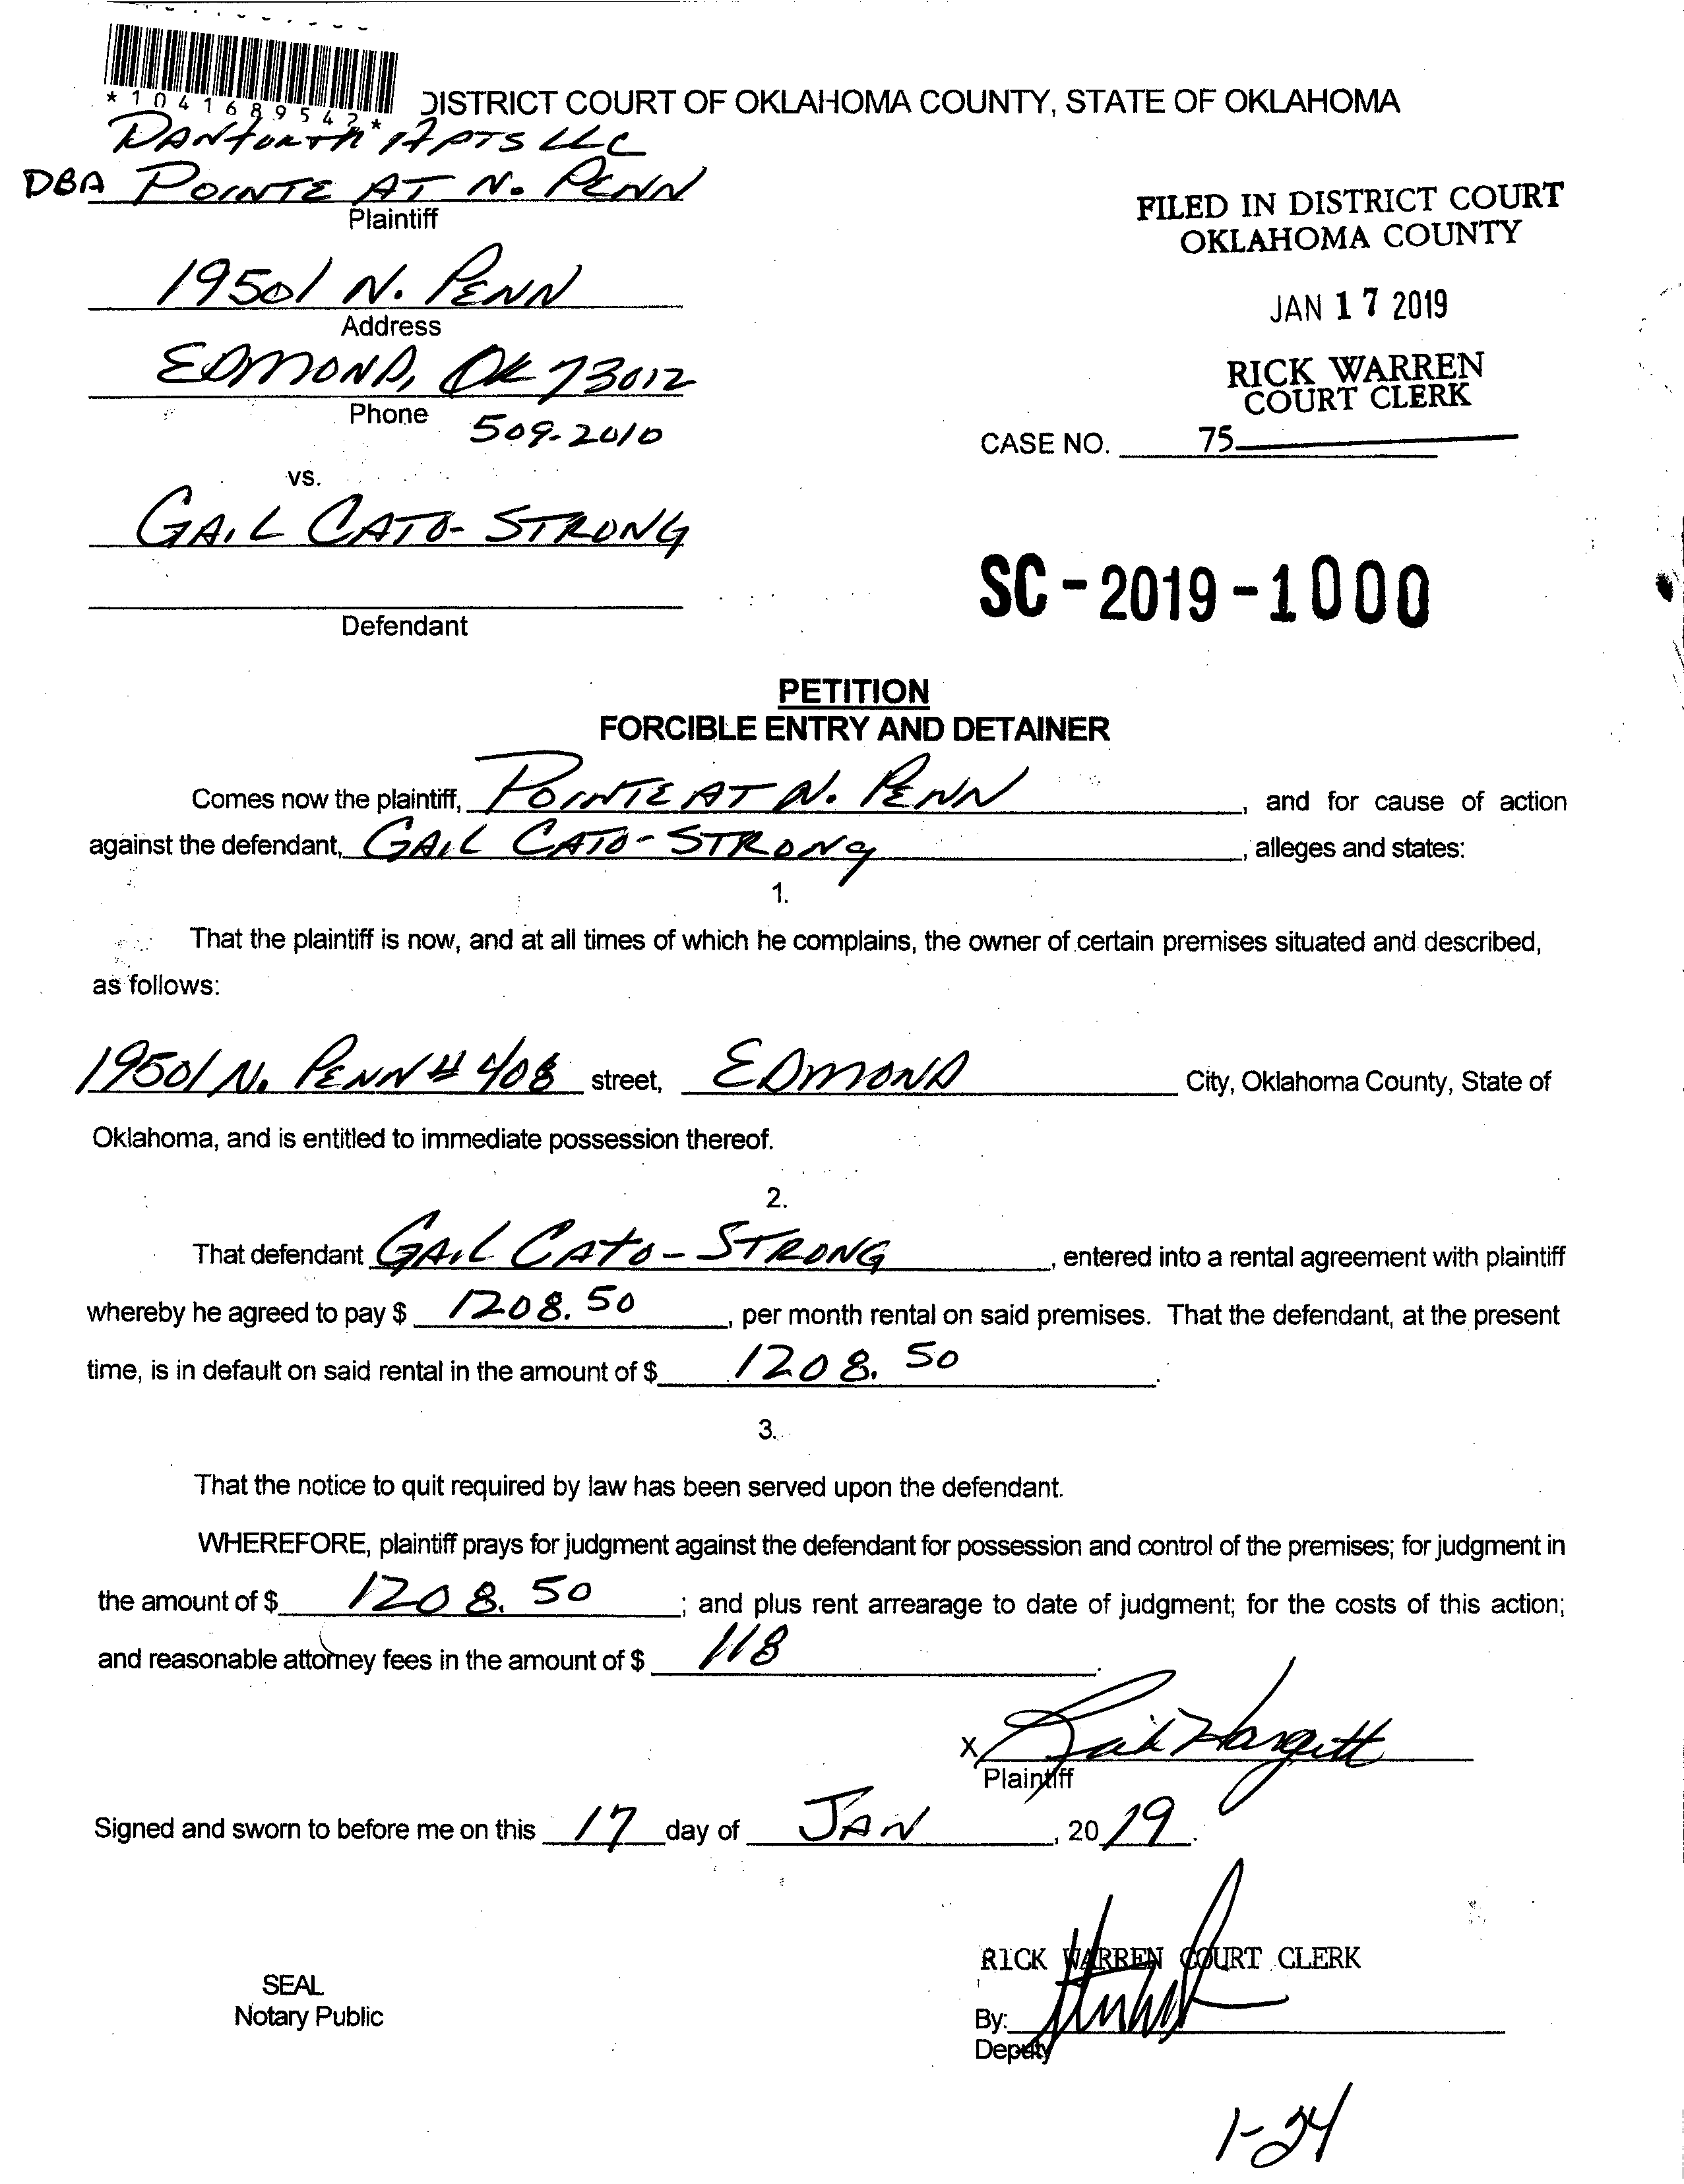 *1041689542*
DISTRICT COURT OF OKLAHOMA COUNTY, STATE OF OKLAHOMA
DANFORTH APTS LLC
DBA POINTE AT N. PENN
Plaintiff
FILED IN DISTRICT COURT
OKLAHOMA COUNTY
19501 N. PENN
Address
JAN 17 2019
EDMOND, OK 73012
Phone 509-2010
RICK WARREN
COURT CLERK
CASE NO. 75
vs.
GAIL CATO-STRONG
Defendant
SC-2019-1000
PETITION
FORCIBLE ENTRY AND DETAINER
Comes now the plaintiff, POINTE AT N. PENN, and for cause of action
against the defendant, GAIL CATO-STRONG, alleges and states:
1.
That the plaintiff is now, and at all times of which he complains, the owner of certain premises situated and described,
as follows:
19501 N. PENN # 408 street, EDMOND City, Oklahoma County, State of
Oklahoma, and is entitled to immediate possession thereof.
2.
That defendant GAIL CATO-STRONG, entered into a rental agreement with plaintiff
whereby he agreed to pay $ 1208.50, per month rental on said premises. That the defendant, at the present
time, is in default on said rental in the amount of $ 1208.50.
3.
That the notice to quit required by law has been served upon the defendant.
WHEREFORE, plaintiff prays for judgment against the defendant for possession and control of the premises; for judgment in
the amount of $ 1208.50; and plus rent arrearage to date of judgment; for the costs of this action;
and reasonable attorney fees in the amount of $ 118.
X Rick Hargett
Plaintiff
Signed and sworn to before me on this 17 day of JAN, 2019.
RICK WARREN COURT CLERK
SEAL
Notary Public
By:
Deputy
1-24